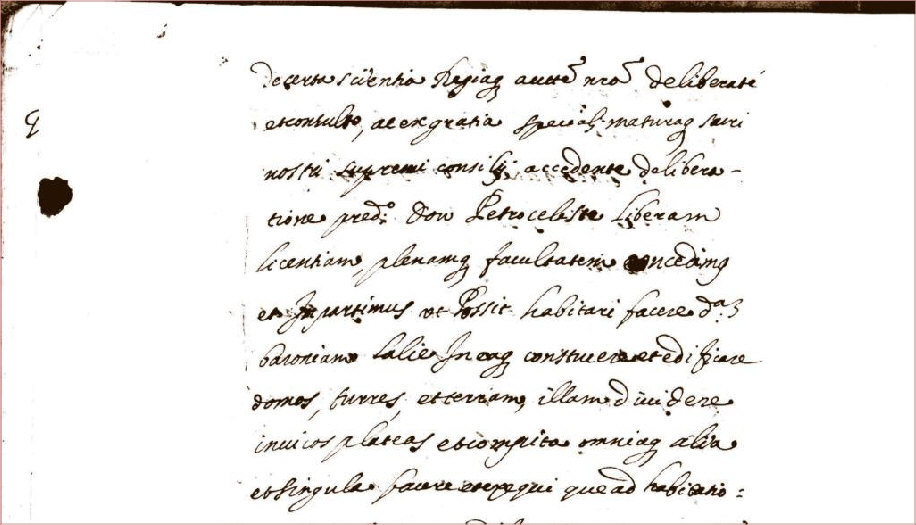 De certa scientia Regiaq auctte nra deliberate
et consulto, ac ex gratia speciali maturaq sacri
nostri supremi consilij accedente delibera-
tione pred.o Don Petro celeste liberam
licentiam, plenamq facultatem concedimq
et Impartimus ut Possit habitari facere d.a
baroniam Lalie In eaq constuere et edificare
domos, turres, et terram, illam dividere
in vicos plateas et compita omniaq alia
et singula facere et exequi que ad habitatio=